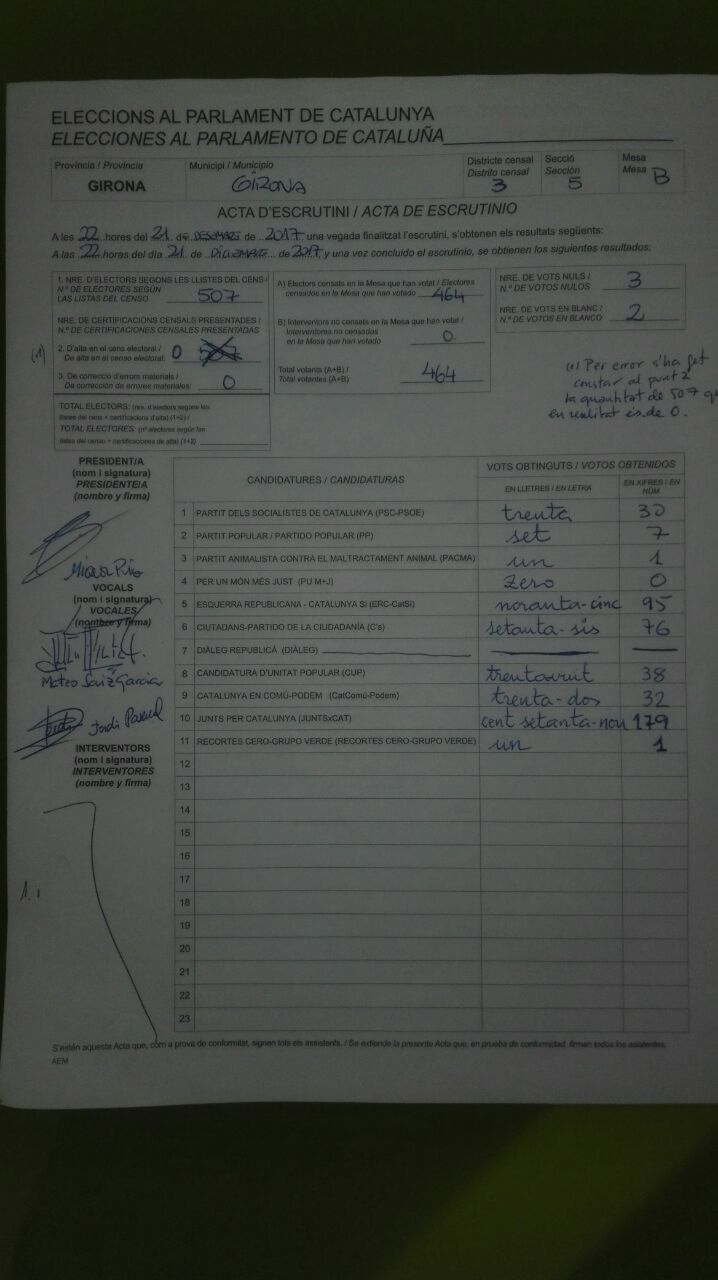 ELECCIONS AL PARLAMENT DE CATALUNYA
ELECCIONES AL PARLAMENTO DE CATALUÑA
Província / Provincia
GIRONA
Municipi / Municipio
GIRONA
Districte censal
Distrito censal
3
Secció
Sección
5
Mesa
Mesa
B
ACTA D'ESCRUTINI / ACTA DE ESCRUTINIO
A les 22 hores del 21 de DESEMBRE de 2017, una vegada finalitzat l'escrutini, s'obtenen els resultats següents:
A las 22 horas del día 21 de DICIEMBRE de 2017, y una vez concluido el escrutinio, se obtienen los siguientes resultados:
1. NRE. D'ELECTORS SEGONS LES LLISTES DEL CENS /
N.º DE ELECTORES SEGÚN
LAS LISTAS DEL CENSO 507
NRE. DE CERTIFICACIONS CENSALS PRESENTADES /
N.º DE CERTIFICACIONES CENSALES PRESENTADAS
(1) 2. D'alta en el cens electoral /
De alta en el censo electoral: 0 507
3. De correcció d'errors materials /
De corrección de errores materiales: 0
TOTAL ELECTORS: (nre. d'electors segons les
llistes del cens + certificacions d'alta) (1+2) /
TOTAL ELECTORES: (nº electores según las
listas del censo + certificaciones de alta) (1+2)
A) Electors censats en la Mesa que han votat / Electores
censados en la Mesa que han votado 464
B) Interventors no censats en la Mesa que han votat /
Interventores no censados
en la Mesa que han votado 0
Total votants (A+B) /
Total votantes (A+B) 464
NRE. DE VOTS NULS /
N.º DE VOTOS NULOS 3
NRE. DE VOTS EN BLANC /
N.º DE VOTOS EN BLANCO 2
(1) Per error s'ha fet
constar al punt 2
la quantitat de 507 q
en realitat és de 0.
PRESIDENT/A
(nom i signatura)
PRESIDENTE/A
(nombre y firma)
VOCALS
(nom i signatura)
VOCALES
(nombre y firma)
Mateo Saiz Garcia
Jordi Pascual
INTERVENTORS
(nom i signatura)
INTERVENTORES
(nombre y firma)
CANDIDATURES / CANDIDATURAS
VOTS OBTINGUTS / VOTOS OBTENIDOS
EN LLETRES / EN LETRA
EN XIFRES / EN NÚM
1 PARTIT DELS SOCIALISTES DE CATALUNYA (PSC-PSOE) trenta 30
2 PARTIT POPULAR / PARTIDO POPULAR (PP) set 7
3 PARTIT ANIMALISTA CONTRA EL MALTRACTAMENT ANIMAL (PACMA) un 1
4 PER UN MÓN MÉS JUST (PU M+J) Zero 0
5 ESQUERRA REPUBLICANA - CATALUNYA SÍ (ERC-CatSí) noranta-cinc 95
6 CIUTADANS-PARTIDO DE LA CIUDADANÍA (C's) setanta-sis 76
7 DIÀLEG REPUBLICÀ (DIÀLEG)
8 CANDIDATURA D'UNITAT POPULAR (CUP) trentavuit 38
9 CATALUNYA EN COMÚ-PODEM (CatComú-Podem) trenta-dos 32
10 JUNTS PER CATALUNYA (JUNTSxCAT) cent setanta-nou 179
11 RECORTES CERO-GRUPO VERDE (RECORTES CERO-GRUPO VERDE) un 1
12
13
14
15
16
17
18
19
20
21
22
23
S'estén aquesta Acta que, com a prova de conformitat, signen tots els assistents. / Se extiende la presente Acta que, en prueba de conformidad, firman todos los asistentes.
AEM